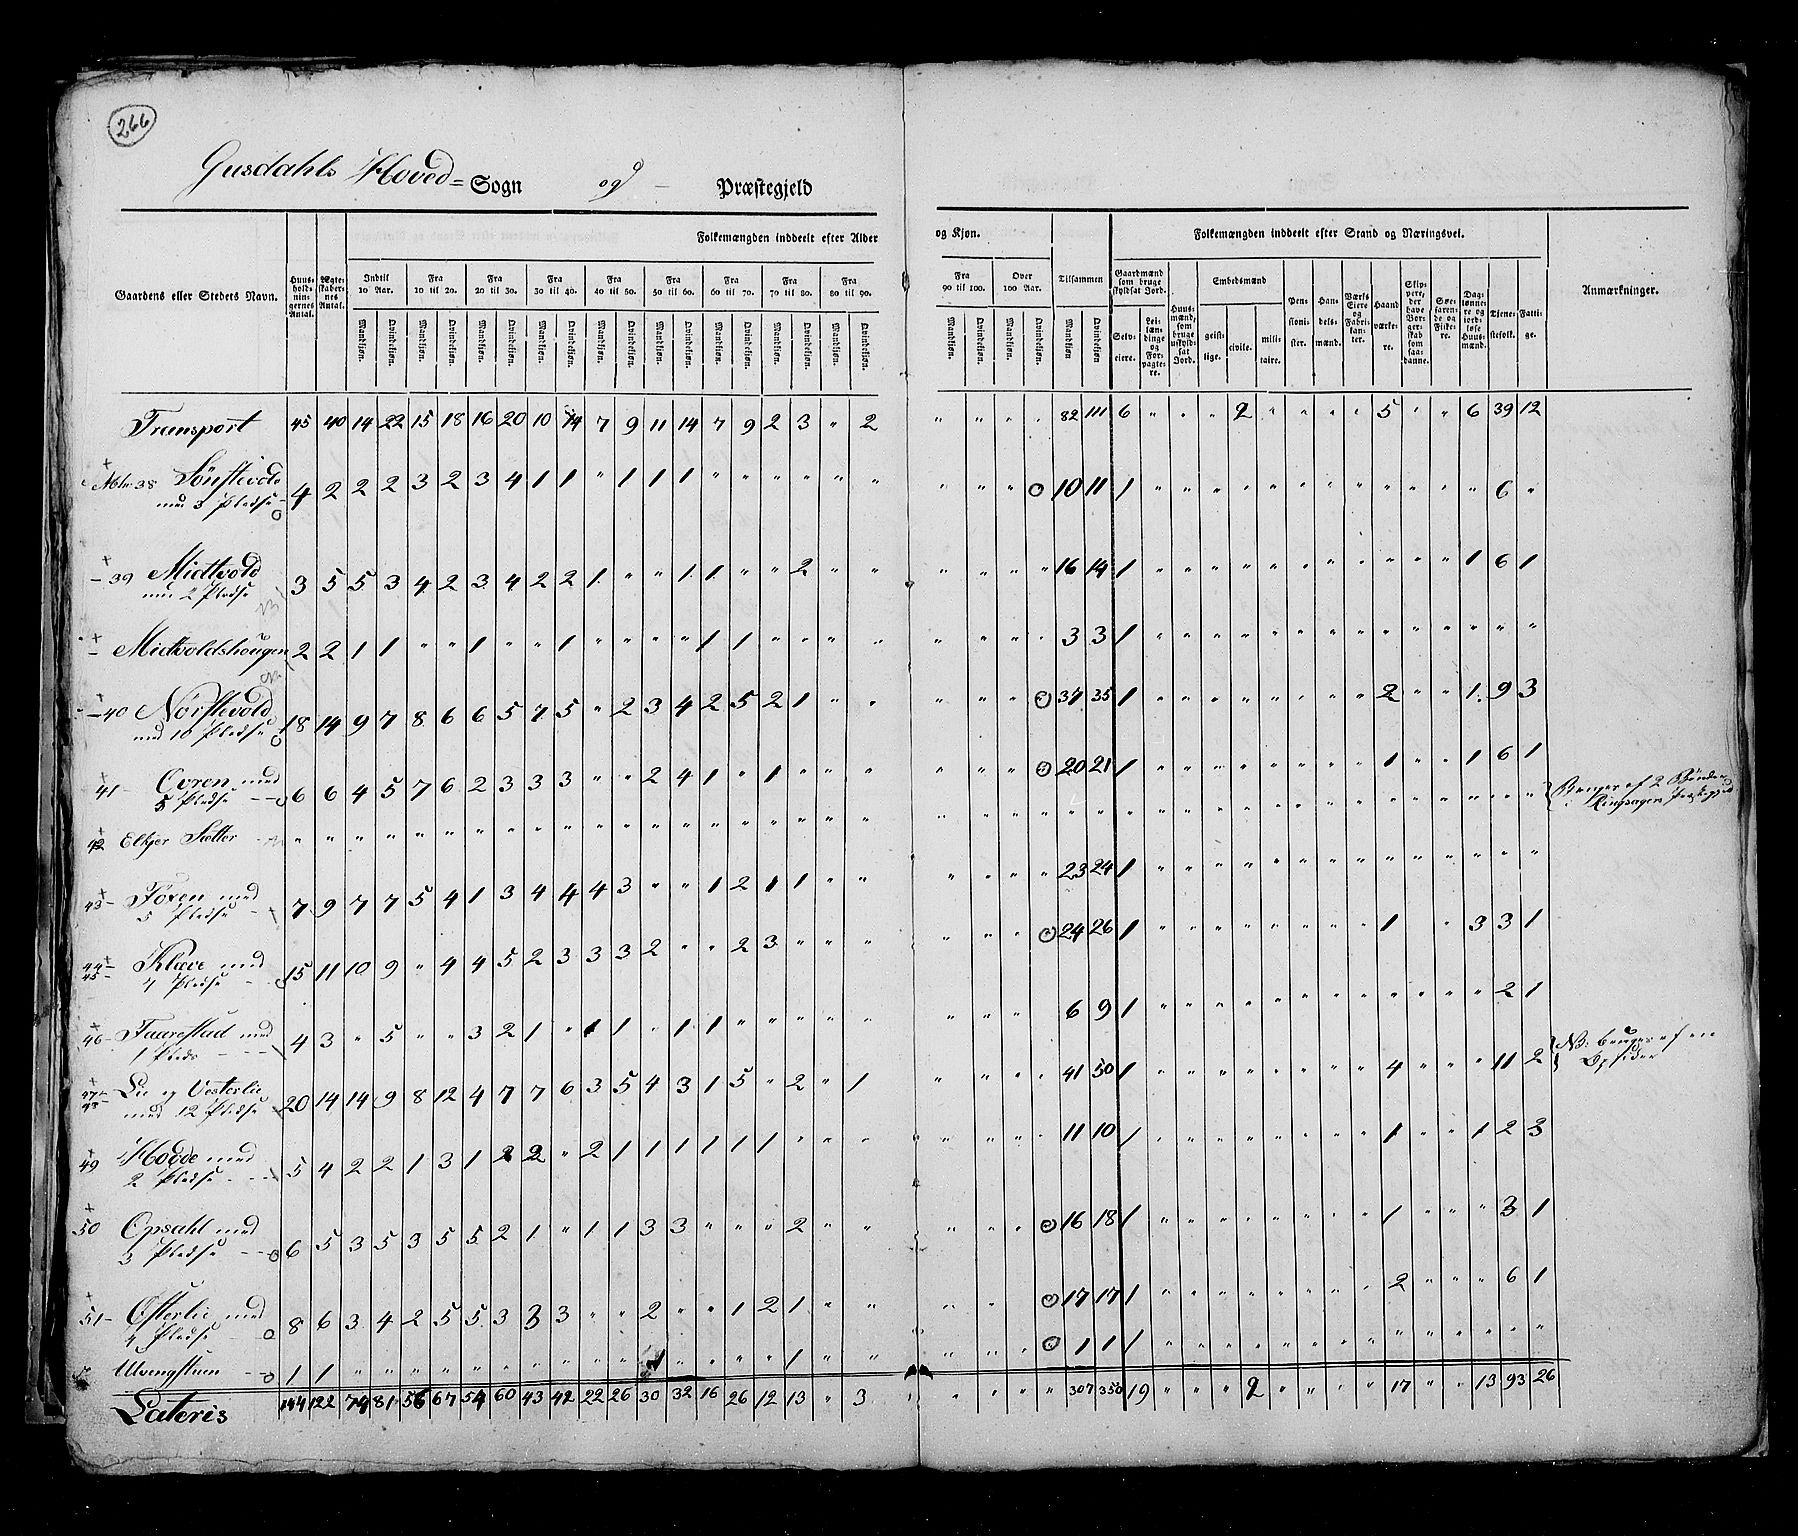 266
Gusdahls Hoved= Sogn og – Præstegjeld
Folkemængden inddeelt efter Alder og Kjøn.
Folkemængden inddeelt efter Stand og Næringsvei.
Gaardens eller Stedets Navn.
Huus-holdningernes Antal.
Ægteskabernes Antal.
Indtil 10 Aar.
Fra 10 til 20.
Fra 20 til 30.
Fra 30 til 40.
Fra 40 til 50.
Fra 50 til 60.
Fra 60 til 70.
Fra 70 til 80.
Fra 80 til 90.
Fra 90 til 100.
Over 100 Aar.
Tilsammen
Mandkjøn. Qvindekjøn.
Gaardmænd som bruge skyldsat Jord.
Selv-eiere.
Leilændinge og Forpagtere.
Huusmænd, som bruge uskyldsat Jord.
Embedsmænd
geistlige. civile. militaire.
Pensionister.
Handelsmænd.
Værks Eiere og Fabrikanter.
Haandværkere.
Skippere, der have Borgerskab som saadanne.
Søefarende og Fiskere.
Dagløn̄ere og jordløse Huusmænd.
Tjenestefolk.
Fattige.
Anmærkninger.
Transport 45 40 14 22 15 18 16 20 10 14 7 9 11 14 7 9 2 3 " 2 " " " " 82 111 6 " " " 2 " " " " 5 " " 6 39 12
38 Sønstevold med 3 Pladse 4 2 2 2 3 2 3 4 1 1 " 1 1 1 " " " " " " " " " 10 11 1 " " " " " " " " " " " " 6 "
39 Midtvold med 2 Pladse 3 5 5 3 4 2 3 4 2 2 1 " " 1 1 " " 2 " " " " " " 16 14 1 " " " " " " " " " " " 1 6 1
Midtvoldshougen 2 2 1 1 " " 1 " " 1 " " " " 1 1 " " " " " " " " 3 3 1 " " " " " " " " " " " " " "
40 Nørstevold med 10 Pladse 18 14 9 7 8 6 6 5 7 5 " 2 3 4 2 5 2 1 " " " " " 37 35 1 " " " " " " " " 2 " " 1 9 3
41 Qvren med 5 Pladse 6 6 4 5 7 6 2 3 3 3 " " 2 4 1 " 1 " " " " " " 20 21 1 " " " " " " " " 1 " " 1 6 1
42 Elkjer Sætter " " " " " " " " " " " " " " " " " " " " " " " " " " " " " " " " " " " " " " " " " Bruges af 2 Bønder i Ringsagers Præstegjeld
43 Foren med 5 Pladse 7 9 7 7 5 4 1 3 4 4 4 3 " " 1 2 1 1 " " " " " " 23 24 1 " " " " " " " " " " " " " "
44 45 Kløve med 4 Pladse 15 11 10 9 " 4 4 5 2 3 3 3 2 " " 2 3 " " " " " " 24 26 1 " " " " " " " " 1 " 3 3 1
46 Taarestad med 1 Plads 4 3 " 5 " " 3 2 1 " 1 1 " 1 1 " " " " " " " " 6 9 1 " " " " " " " " " " " " 2 1
47 48 Lie og Vesterlie med 12 Pladse 20 14 14 9 8 12 4 7 7 6 3 5 4 3 1 5 " 2 " 1 " " " " 41 50 1 " " " " " " " " 4 " " " 11 2 NB: bruges af en Opsidder
49 Hodde med 2 Pladse 5 4 2 2 1 3 1 2 2 " 2 1 1 1 1 1 1 " " " " " " " 11 10 1 " " " " " " " " 1 " " 1 2 3
50 Opsahl med 3 Pladse 6 5 3 5 3 5 5 2 1 " 1 1 3 3 " " " 2 " " " " " 16 18 1 " " " " " " " " 1 " " " 3 1
51 Østerlie med 4 Pladse 8 6 3 4 2 5 5 3 3 3 " " 2 " " 1 2 1 " " " " 17 17 1 " " " " " " " " 2 " " " 6 1
Ulvengstuen 1 1 " " " " " " " " " " 1 " " " " 1 " " " " " 1 1 1 " " " " " " " " " " " " " "
Lateris 144 122 74 81 56 67 54 60 43 42 22 26 30 32 16 26 12 13 " 3 " " " " 307 350 19 " " " 2 " " " " 17 " " 13 93 26